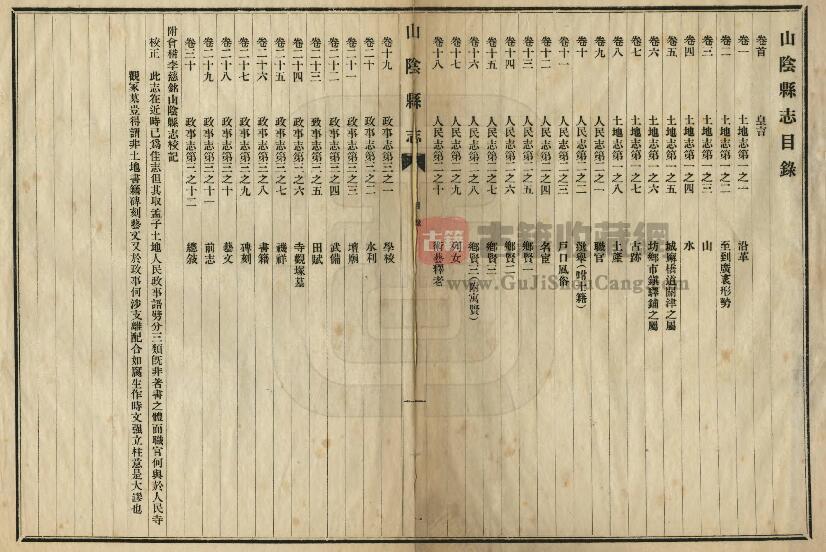 山陰縣志目錄
卷首 皇言
卷一 土地志第一之一 沿革
卷二 土地志第一之二 至到廣袤形勢
卷三 土地志第一之三 山
卷四 土地志第一之四 水
卷五 土地志第一之五 城廨橋道關津之屬
卷六 土地志第一之六 坊鄉市鎮驛鋪之屬
卷七 土地志第一之七 古跡
卷八 土地志第一之八 土產
卷九 人民志第二之一 職官
卷十 人民志第二之二 選舉(附土籍)
卷十一 人民志第二之三 戶口風俗
卷十二 人民志第二之四 名宦
卷十三 人民志第二之五 鄉賢一
卷十四 人民志第二之六 鄉賢二
卷十五 人民志第二之七 鄉賢三
卷十六 人民志第二之八 鄉賢三(附寓賢)
卷十七 人民志第二之九 列女
卷十八 人民志第二之十 術藝釋老
山陰縣志 目錄 一
卷十九 政事志第三之一 學校
卷二十 政事志第三之二 水利
卷二十一 政事志第三之三 壇廟
卷二十二 政事志第三之四 武備
卷二十三 政事志第三之五 田賦
卷二十四 政事志第三之六 寺觀塚墓
卷二十五 政事志第三之七 禨祥
卷二十六 政事志第三之八 書籍
卷二十七 政事志第三之九 碑刻
卷二十八 政事志第三之十 藝文
卷二十九 政事志第三之十一 前志
卷三十 政事志第三之十二 總敍
附會稽李慈銘山陰縣志校記
校正 此志在近時已為佳志但其取孟子土地人民政事語劈分三類既非著書之體而職官何與於人民寺
觀冢墓豈得謂非土地書籍碑刻藝文又於政事何涉支離配合如腐生作時文强立柱意是大謬也
古籍 古籍收藏網
www.GuJiShouCang.com